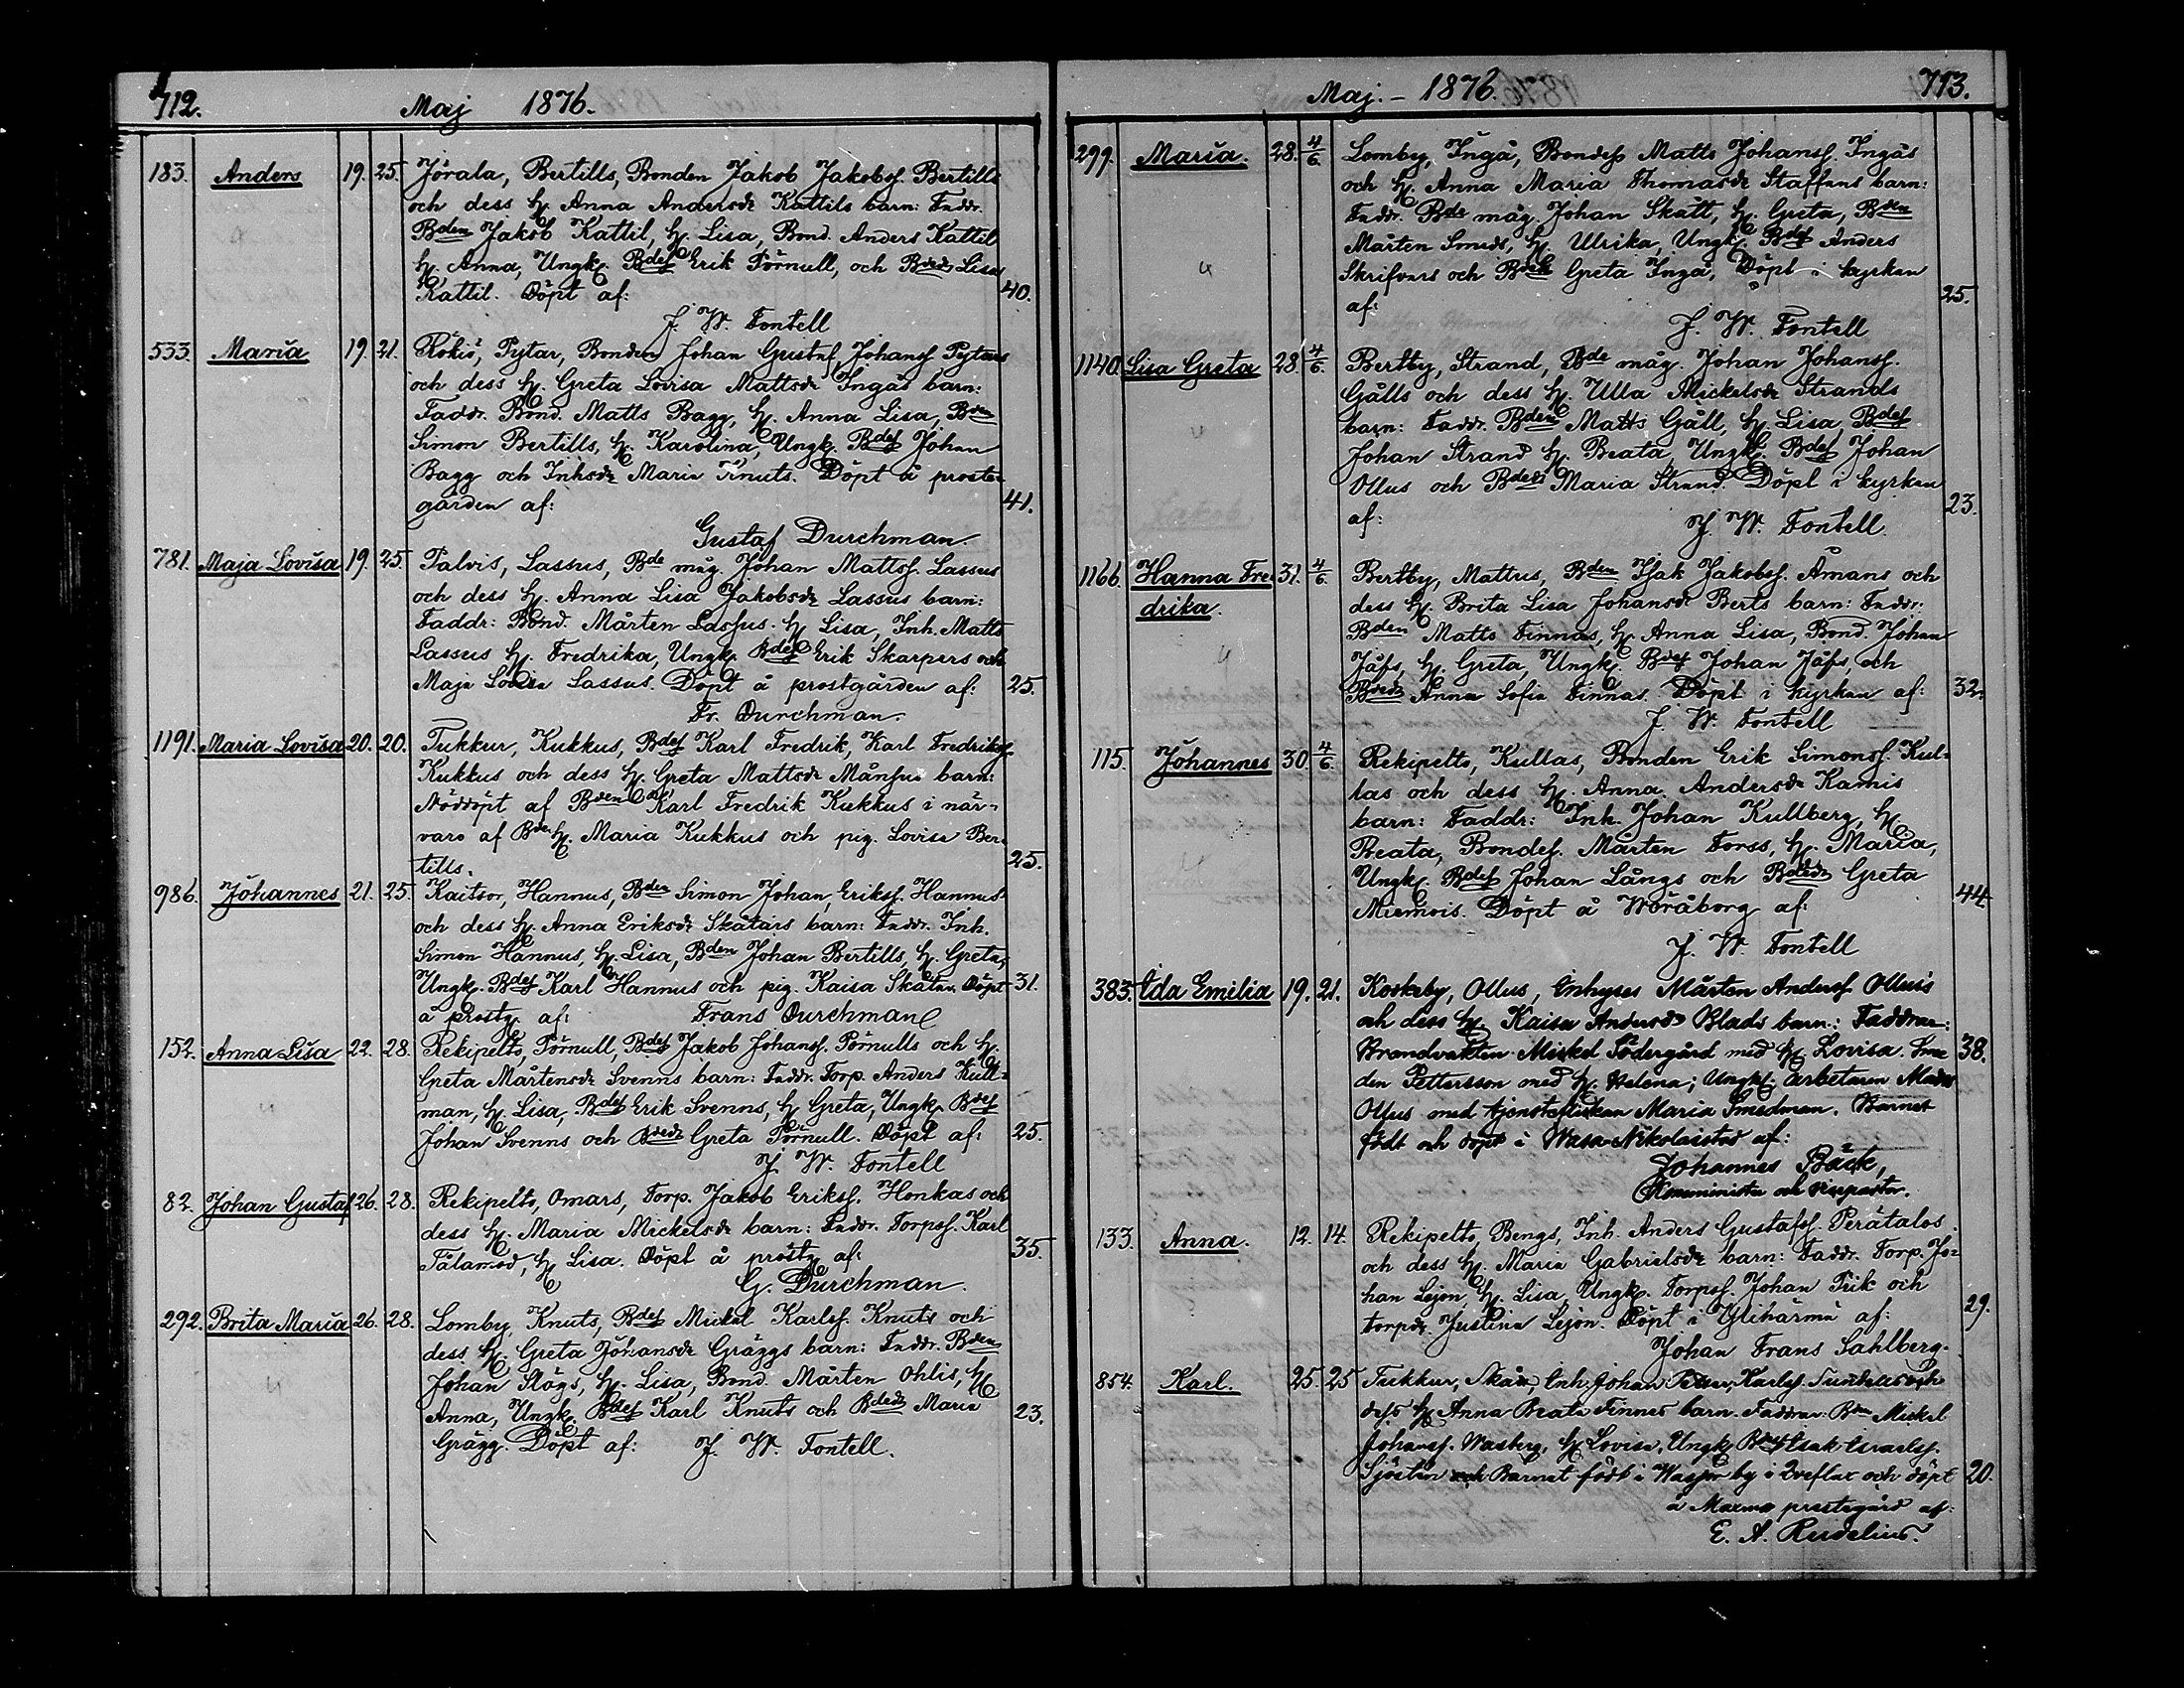 712. Maj 1876.
183. Anders 19. 25. Jörala, Bertills, Bonden Jakob Jakobss. Bertills
och dess h. Anna Andersdr Kattils barn: Faddr.
Bden Jakob Kattil, h. Lisa, Bond. Anders Kattil
h. Anna, Ungk. Bdes Erik Törnull, och Bdedr Lisa
Kattil. Döpt af: 40.
J. W. Fontell
533. Maria 19. 21. Rökiö, Pytar, Bonden Johan Gustaf Johanss. Pytars
och dess h. Greta Lovisa Mattsdr Ingås barn:
Faddr. Bond. Matts Bagg, h. Anna Lisa, Bden
Simon Bertills, h. Karolina, Ungk. Bdes Johan
Bagg och Inhsdr Maria Knuts. Döpt å prost-
gården af: 41.
Gustaf Durchman.
781. Maja Lovisa 19. 25. Palvis, Lassus, Bde måg. Johan Mattss. Lassus
och dess h. Anna Lisa Jakobsdr Lassus barn:
Faddr: Bond. Mårten Lassus. h. Lisa, Inh. Matts
Lassus h. Fredrika, Ungk. Bdes Erik Skarpers och
Maja Lovisa Lassus. Döpt å prostgården af: 25.
Fr. Durchman.
1191. Maria Lovisa 20. 20. Tukkur, Kukkus, Bdes Karl Fredrik, Karl Fredrikss.
Kukkus och dess h. Greta Mattsdr Månsus barn:
Nöddöpt af Bden Karl Fredrik Kukkus i när-
varo af Bde h. Maria Kukkus och pig. Lovisa Ber-
tills. 25.
986. Johannes 21. 25. Kaitsor, Hannus, Bden Simon Johan Erikss. Hannus
och dess h. Anna Eriksdr Skåtars barn: Faddr. Inh.
Simon Hannus, h. Lisa, Bden Johan Bertills, h. Greta,
Ungk. Bdes Karl Hannus och pig. Kaisa Skåtar. Döpt 31.
å prostg. af: Frans Durchman
152. Anna Lisa 22. 28. Rekipelto, Törnull, Bdes Jakob Johanss. Törnulls och h.
Greta Mårtensdr Svenns barn: Faddr. Torp. Anders Kull-
man, h. Lisa, Bdes Erik Svenns, h. Greta, Ungk. Bdes
Johan Svenns och Bdedr Greta Törnull. Döpt af: 25.
J. W. Fontell
82. Johan Gustaf 26. 28. Rekipelto, Omars, Torp. Jakob Erikss. Honkas och
dess h. Maria Mickelsdr barn: Faddr. Torpss. Karl
Tålamod, h. Lisa. Döpt å prostg. af: 35.
G. Durchman.
292. Brita Maria 26. 28. Lomby, Knuts, Bdes Mickel Karlss. Knuts och
dess h. Greta Johansdr Gräggs barn: Faddr. Bden
Johan Slögs, h. Lisa, Bond. Mårten Ohlis, h.
Anna, Ungk. Bdes Karl Knuts och Bdedr Maria 23.
Grägg. Döpt af: J. W. Fontell.
Maj. - 1876. 713.
299. Maria. 28. 4/6. Lomby, Ingå, Bondes Matts Johanss. Ingås
och h. Anna Maria Thomasdr Staffans barn:
Faddr. Bde måg. Johan Skatt, h. Greta, Bden
Mårten Smeds, h. Ulrika, Ungk. Bdes Anders
Skrifvars och Bdedr Greta Ingå, Döpt i kyrkan
af: 25.
J. W. Fontell
1140. Lisa Greta 28. 4/6. Bertby, Strand, Bde måg. Johan Johanss.
Gålls och dess h. Ulla Mickelsdr Strands
barn: Faddr. Bden Matts Gåll, h. Lisa, Bdes
Johan Strand h. Beata, Ungk. Bdes Johan
Ollus och Bdedr Maria Strand. Döpt i kyrkan
af: 23.
J. W. Fontell.
1166. Hanna Fre- 31. 4/6. Bertby, Mattus, Bden Isak Jakobss. Åmans och
drika. dess h. Brita Lisa Johansdr Berts barn: Faddr:
Bden Matts Finnas, h. Anna Lisa, Bond. Johan
Jåfs, h. Greta, Ungk. Bdes Johan Jåfs och
Bdedr Anna Sofia Finnas. Döpt i kyrkan af: 32.
J. W. Fontell
115. Johannes 30. 4/6. Rekipelto, Kullas, Bonden Erik Simonss. Kul-
las och dess h. Anna Andersdr Kamis
barn: Faddr: Inh. Johan Kullberg, h.
Beata, Bondes. Mårten Forss, h. Maria,
Ungk. Bdes Johan Långs och Bdedr Greta
Miemois. Döpt å Wöråborg af: 44.
J. W. Fontell
383. Ida Emilia 19. 21. Koskeby, Ollus, Inhyses Mårten Anderss Ollus's
och dess h. Kaisa Andersdr Blads barn: Faddrar:
Brandvakten Mickel Södergård med h. Lovisa. Sme- 38.
den Pettersson med h. Helena; Ungk. arbetaren Matts
Ollus med tjenstefliskan Maria Smedman. Barnet
födt och döpt i Wasa-Nikolaistad af:
Johannes Bäck,
Komminister och Vicepastor.
133. Anna. 12. 14. Rekipelto, Bengs, Inh. Anders Gustafss. Perätalos
och dess h. Maria Gabrielsdr barn: Faddr. Torp. Jo-
han Lejon, h. Lisa, Ungk. Torpss. Johan Frik och
torpdr. Justina Lejon. Döpt i Ylihärmä af: 29.
Johan Frans Sahlberg.
854. Karl. 25. 25 Tukkur, Skåtar, Inh. Johan Petter Karlss. och
dess h. Anna Beata Finnes barn. Faddrar: Bden Mickel
Johanss. Wasberg, h. Lovisa, Ungk Bdes Isak Israelss.
Sjöstin Barnet födt i Wassor by i Qveflax och döpt 20.
å Maxmo prestegård af:
E. A. Rudelius.